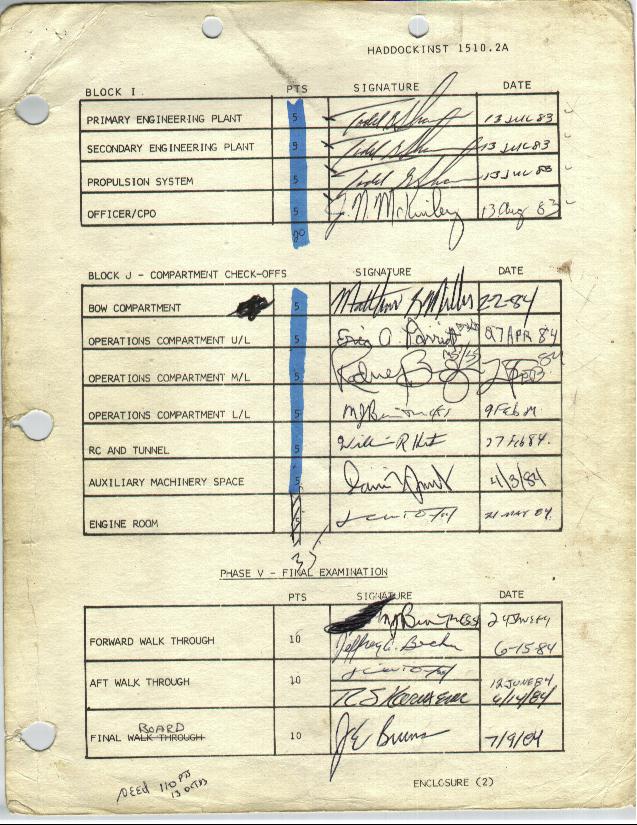 HADDOCKINST 1510.2A
BLOCK I PTS SIGNATURE DATE
PRIMARY ENGINEERING PLANT 5 13 JUL 83
SECONDARY ENGINEERING PLANT 5 13 JUL 83
PROPULSION SYSTEM 5 13 JUL 83
OFFICER/CPO 5 J. N. McKinley 13 Aug 83
20
BLOCK J - COMPARTMENT CHECK-OFFS SIGNATURE DATE
BOW COMPARTMENT 5 Matthew 22-84
OPERATIONS COMPARTMENT U/L 5 Eric O Parrish 27 APR 84
OPERATIONS COMPARTMENT M/L 5 Rodney
OPERATIONS COMPARTMENT L/L 5 9 Feb
RC AND TUNNEL 5 William R 27 Feb 84.
AUXILIARY MACHINERY SPACE 5 4/3/84
ENGINE ROOM 5 21 MAY 84
PHASE V - FINAL EXAMINATION
PTS SIGNATURE DATE
FORWARD WALK THROUGH 10 Jeffrey 6-15-84
AFT WALK THROUGH 10 12 JUNE 84
6/14/84
BOARD
FINAL WALK THROUGH 10 J E Burns 7/9/84
NEED 110 PTS
13 OCT 83
ENCLOSURE (2)